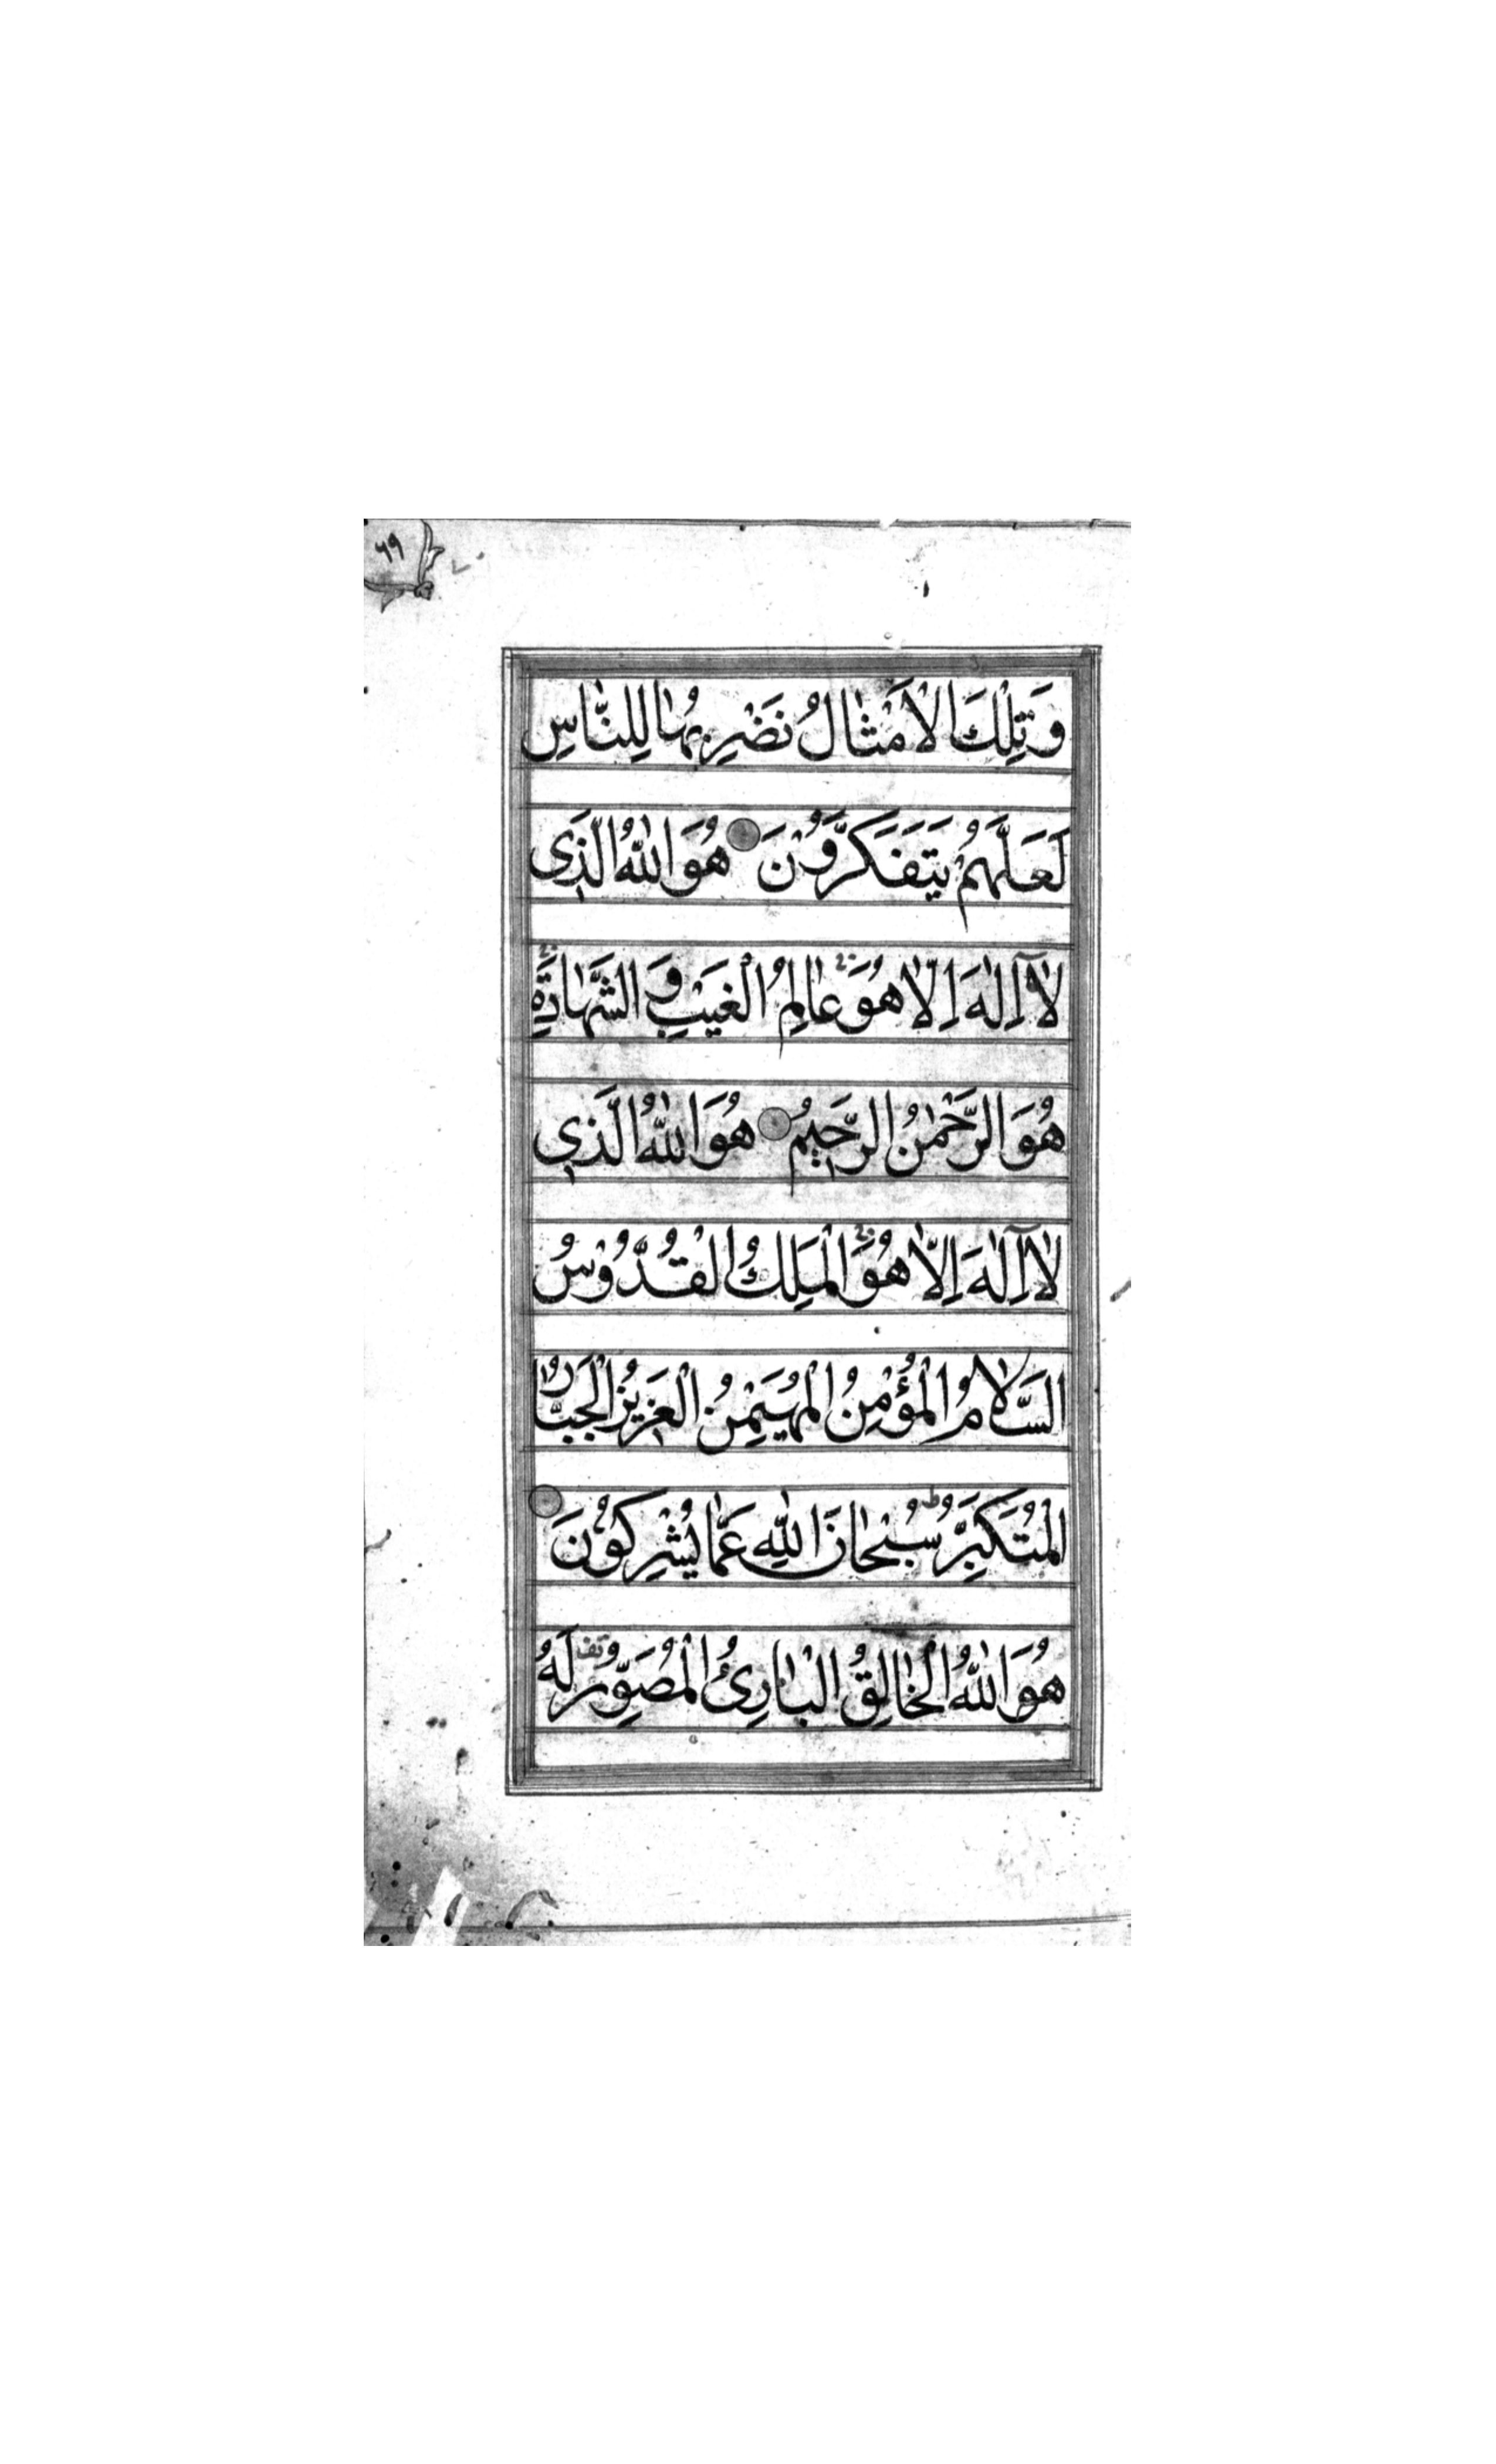 ٦٩
وَتِلْكَ الْاَمْثٰالُ نَضْرِبُهٰا لِلنّٰاسِ
لَعَلَّهُمْ يَتَفَكَّرُوْنَ هُوَ اللّٰهُ الَّذٖى
لٰا اِلٰهَ اِلّٰا هُوَ عٰالِمُ الْغَيْبِ وَ الشَّهٰادَةِ
هُوَ الرَّحْمٰنُ الرَّحٖيمُ هُوَ اللّٰهُ الَّذٖي
لٰا اِلٰهَ اِلّٰا هُوَ الْمَلِكُ الْقُدُّوْسُ
السَّلٰامُ الْمُؤْمِنُ الْمُهَيْمِنُ الْعَزٖيزُ الْجَبّٰارُ
الْمُتَكَبِّرُ ط سُبْحٰانَ اللّٰهِ عَمّٰا يُشْرِكُوْنَ
هُوَ اللّٰهُ الْخٰالِقُ الْبٰارِئُ الْمُصَوِّرُ لَهُ